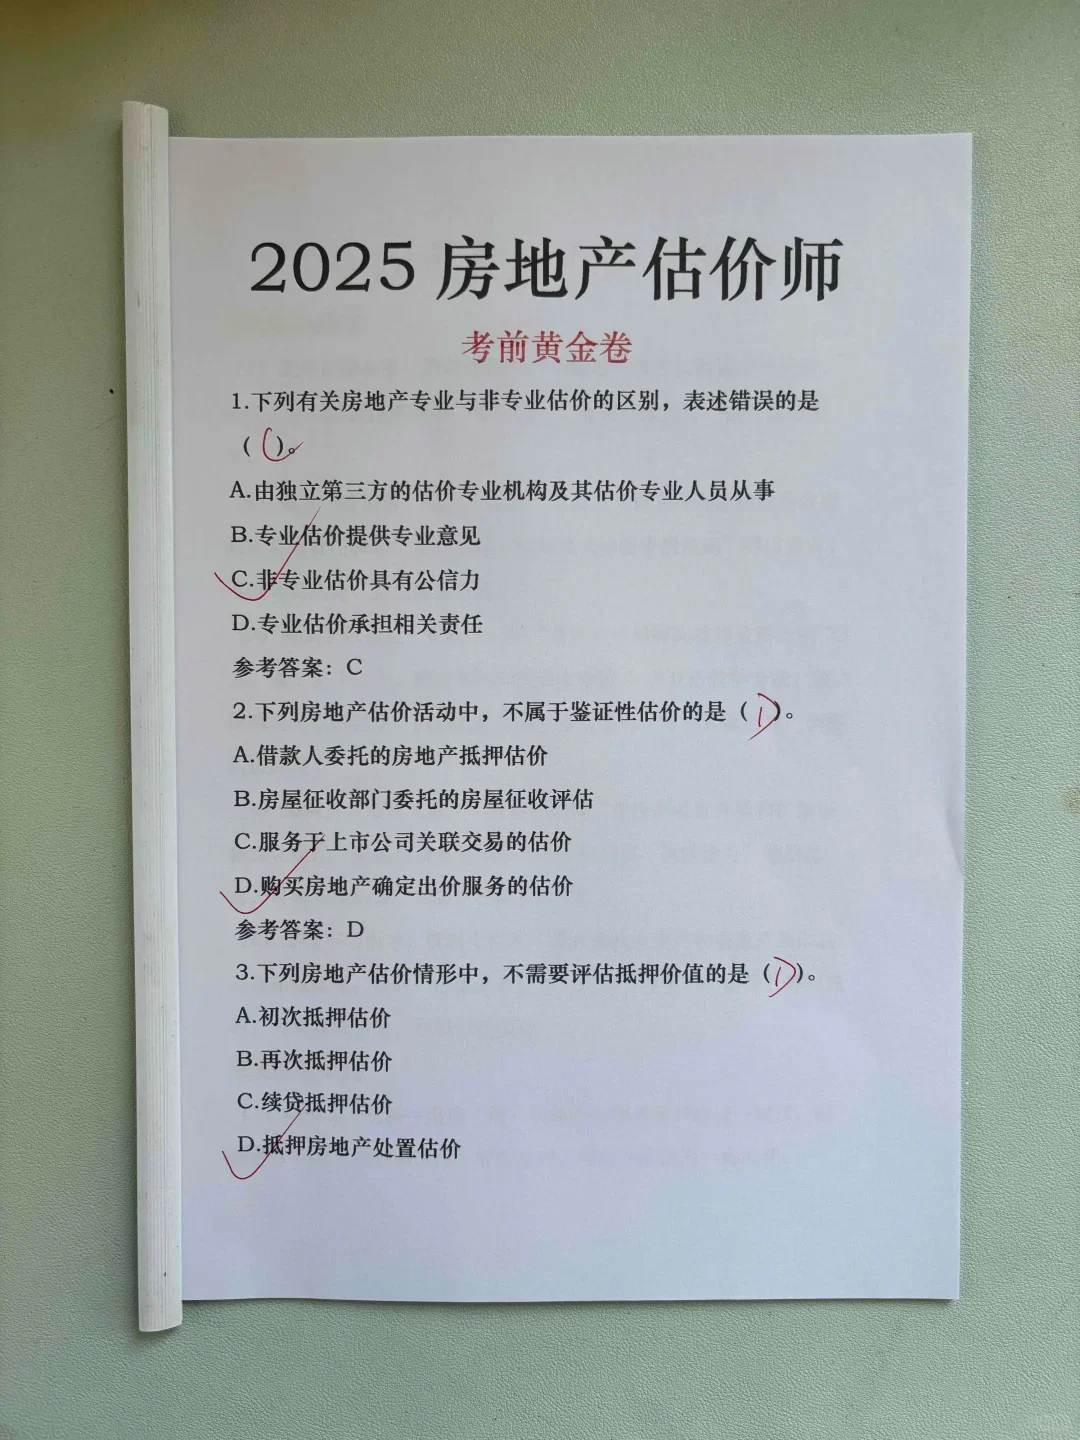 2025 房地产估价师
考前黄金卷
1.下列有关房地产专业与非专业估价的区别，表述错误的是
（C）。
A.由独立第三方的估价专业机构及其估价专业人员从事
B.专业估价提供专业意见
C.非专业估价具有公信力
D.专业估价承担相关责任
参考答案：C
2.下列房地产估价活动中，不属于鉴证性估价的是（D）。
A.借款人委托的房地产抵押估价
B.房屋征收部门委托的房屋征收评估
C.服务于上市公司关联交易的估价
D.购买房地产确定出价服务的估价
参考答案：D
3.下列房地产估价情形中，不需要评估抵押价值的是（D）。
A.初次抵押估价
B.再次抵押估价
C.续贷抵押估价
D.抵押房地产处置估价